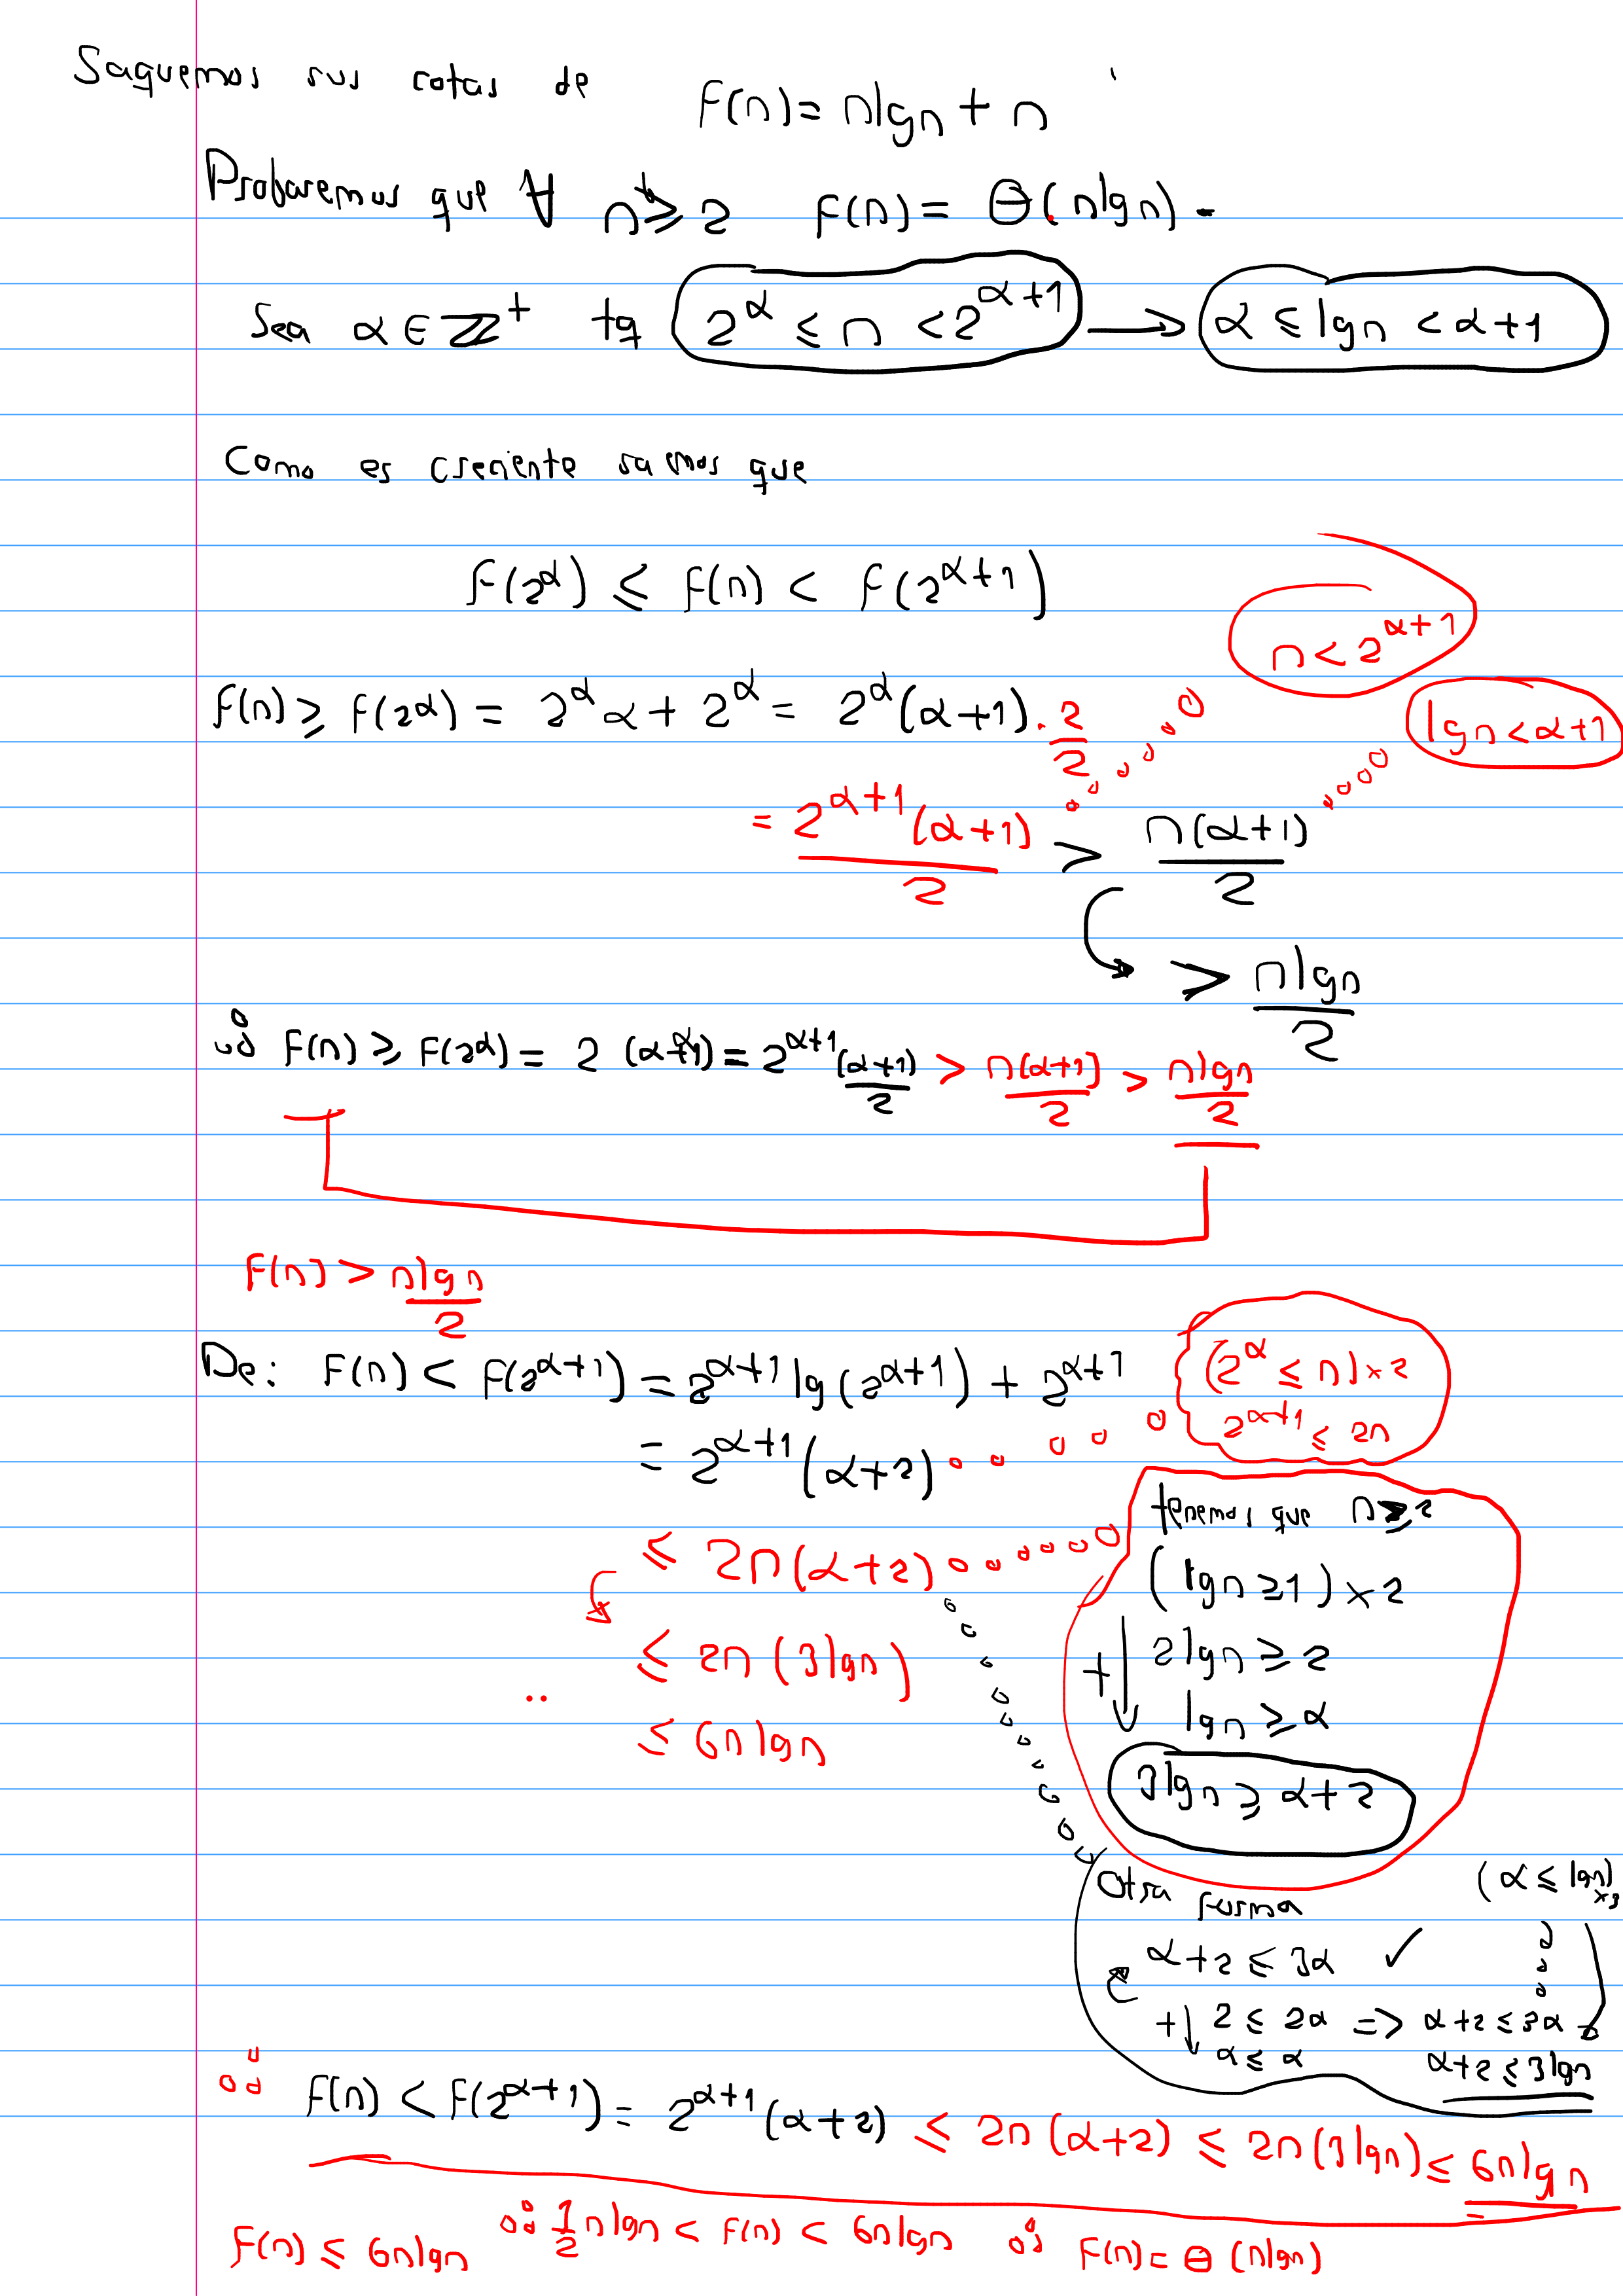 Saquemos sus cotas de F(n) = nlgn + n
Probaremos que ∀ n ≥ 2 F(n) = Θ(nlgn).
Sea α ∈ ℤ⁺ tq 2^α ≤ n < 2^(α+1) → α ≤ lgn < α+1
Como es creciente samos que
F(2^α) ≤ F(n) < F(2^(α+1))
n < 2^(α+1)
F(n) ≥ F(2^α) = 2^α α + 2^α = 2^α(α+1) · 2/2
lgn < α+1
= 2^(α+1)(α+1)/2 > n(α+1)/2
> nlgn/2
∴ F(n) ≥ F(2^α) = 2^α(α+1) = 2^(α+1)(α+1)/2 > n(α+1)/2 > nlgn/2
F(n) > nlgn/2
De: F(n) < F(2^(α+1)) = 2^(α+1) lg(2^(α+1)) + 2^(α+1)
(2^α ≤ n) × 2
2^(α+1) ≤ 2n
= 2^(α+1)(α+2)
≤ 2n(α+2)
≤ 2n(3lgn)
≤ 6nlgn
tenemos que n ≥ 2
(lgn ≥ 1) × 2
+↓ 2lgn ≥ 2
lgn ≥ α
3lgn ≥ α+2
Otra forma
(α ≤ lgn) ×3
α+2 ≤ 3α ✓
+↓ 2 ≤ 2α => α+2 ≤ 3α
α ≤ α
α+2 ≤ 3lgn
∴ F(n) < F(2^(α+1)) = 2^(α+1)(α+2) ≤ 2n(α+2) ≤ 2n(3lgn) ≤ 6nlgn
F(n) ≤ 6nlgn ∴ 1/2 nlgn < F(n) < 6nlgn ∴ F(n) = Θ(nlgn)